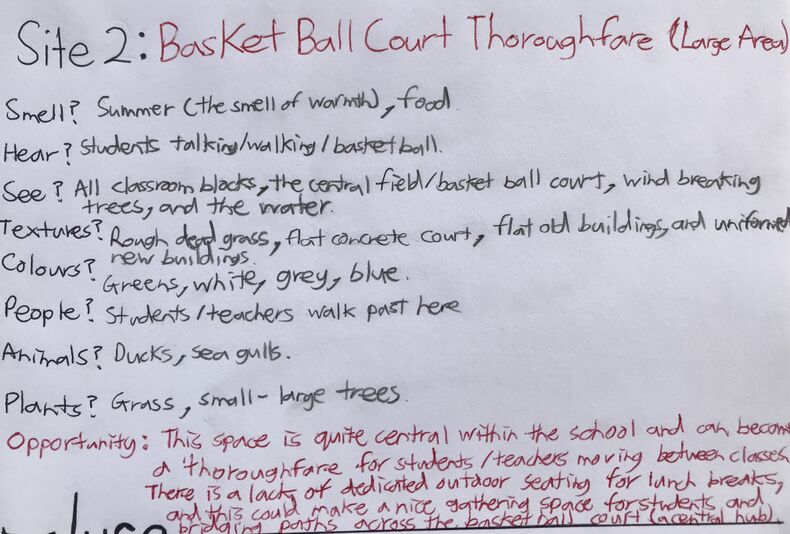 Site 2: Basket Ball Court Thoroughfare (Large Area)
Smell? Summer (the smell of warmth), food.
Hear? Students talking/walking/basketball.
See? All classroom blocks, the central field/basket ball court, wind breaking
trees, and the water.
Textures? Rough dead grass, flat concrete court, flat old buildings, and uniformed
new buildings.
Colours? Greens, white, grey, blue.
People? Students/teachers walk past here
Animals? Ducks, sea gulls.
Plants? Grass, small-large trees.
Opportunity: This space is quite central within the school and can become
a thoroughfare for students/teachers moving between classes.
There is a lack of dedicated outdoor seating for lunch breaks,
and this could make a nice gathering space for students and
bridging paths across the basket ball court (a central hub).